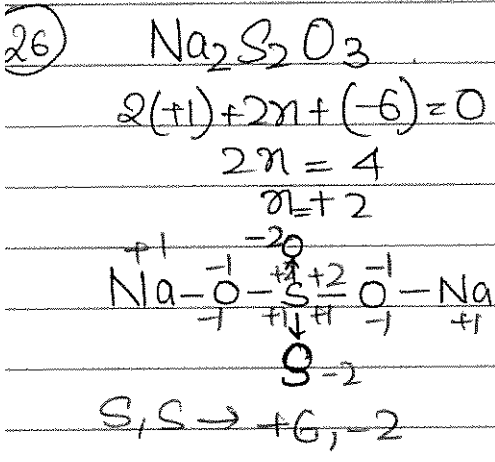 26 Na2S2O3
2(+1)+2n+(-6)=0
2n = 4
n=+2
+1 -2 O
-1 +2 +2 -1
Na-O-S-O-Na
-1 +1 +1 -1 +1
S -2
S, S → +6, -2